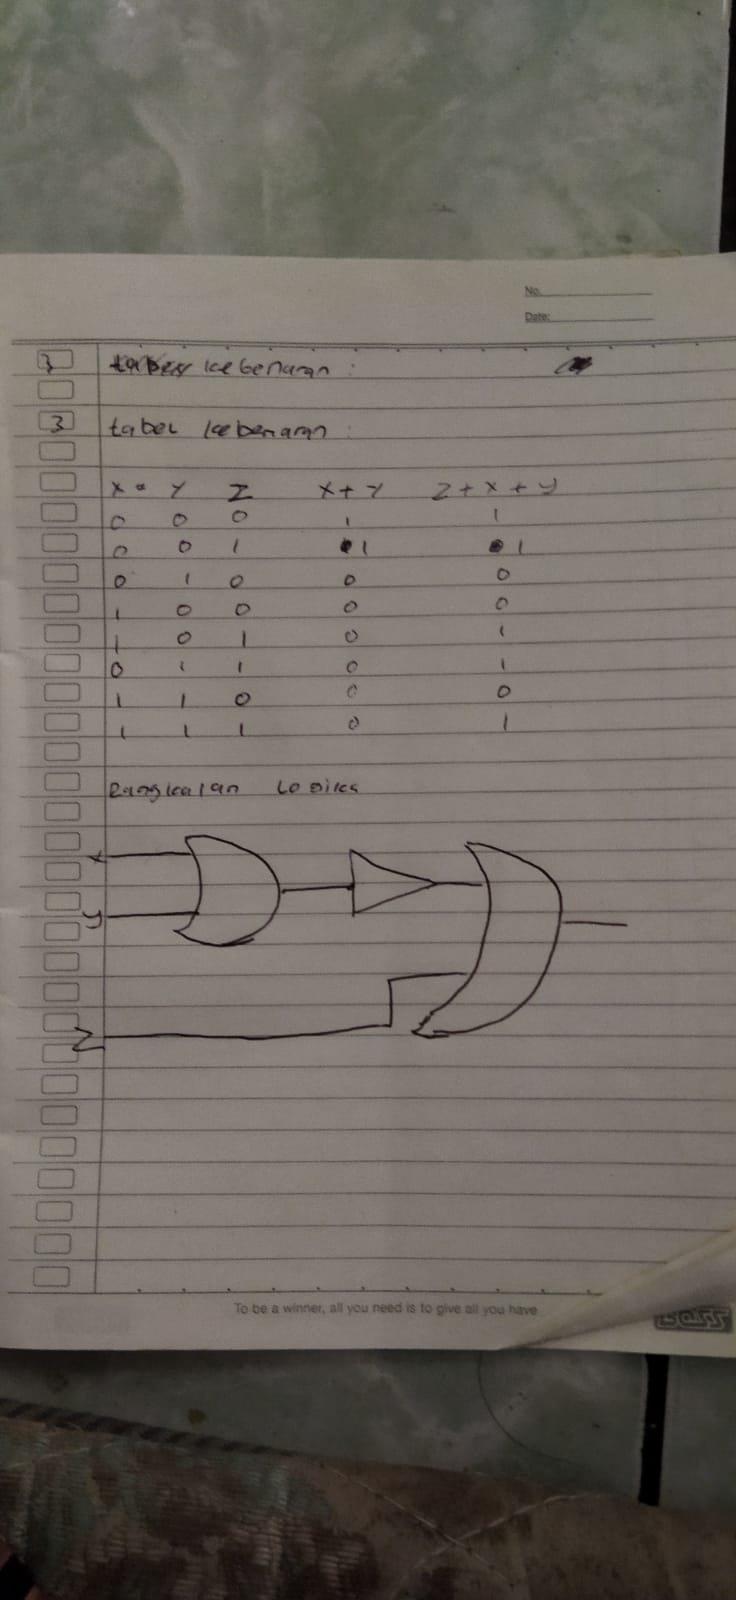 No.
Date:
3 tabel kebenaran :
3 tabel kebenaran :
X Y Z X+Y Z+X+Y
0 0 0 1 1
0 0 1 1 1
0 1 0 0 0
1 0 0 0 0
1 0 1 0 1
0 1 1 0 1
1 1 0 0 0
1 1 1 0 1
Rangkaian Logika
x
y
Z
To be a winner, all you need is to give all you have